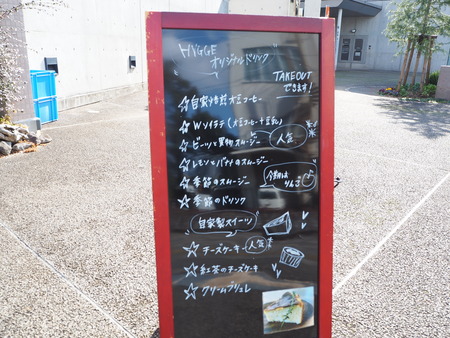 HYGGE
オリジナルドリンク
TAKEOUT
できます!
☆自家焙煎大豆コーヒー
☆Wソイラテ(大豆コーヒー+豆乳)
☆ビーツと果物スムージー 人気
☆レモンとバナナのスムージー
☆季節のスムージー 今時期はりんご
☆季節のドリンク
自家製スイーツ
☆チーズケーキ 人気
☆紅茶のチーズケーキ
☆クリームブリュレ